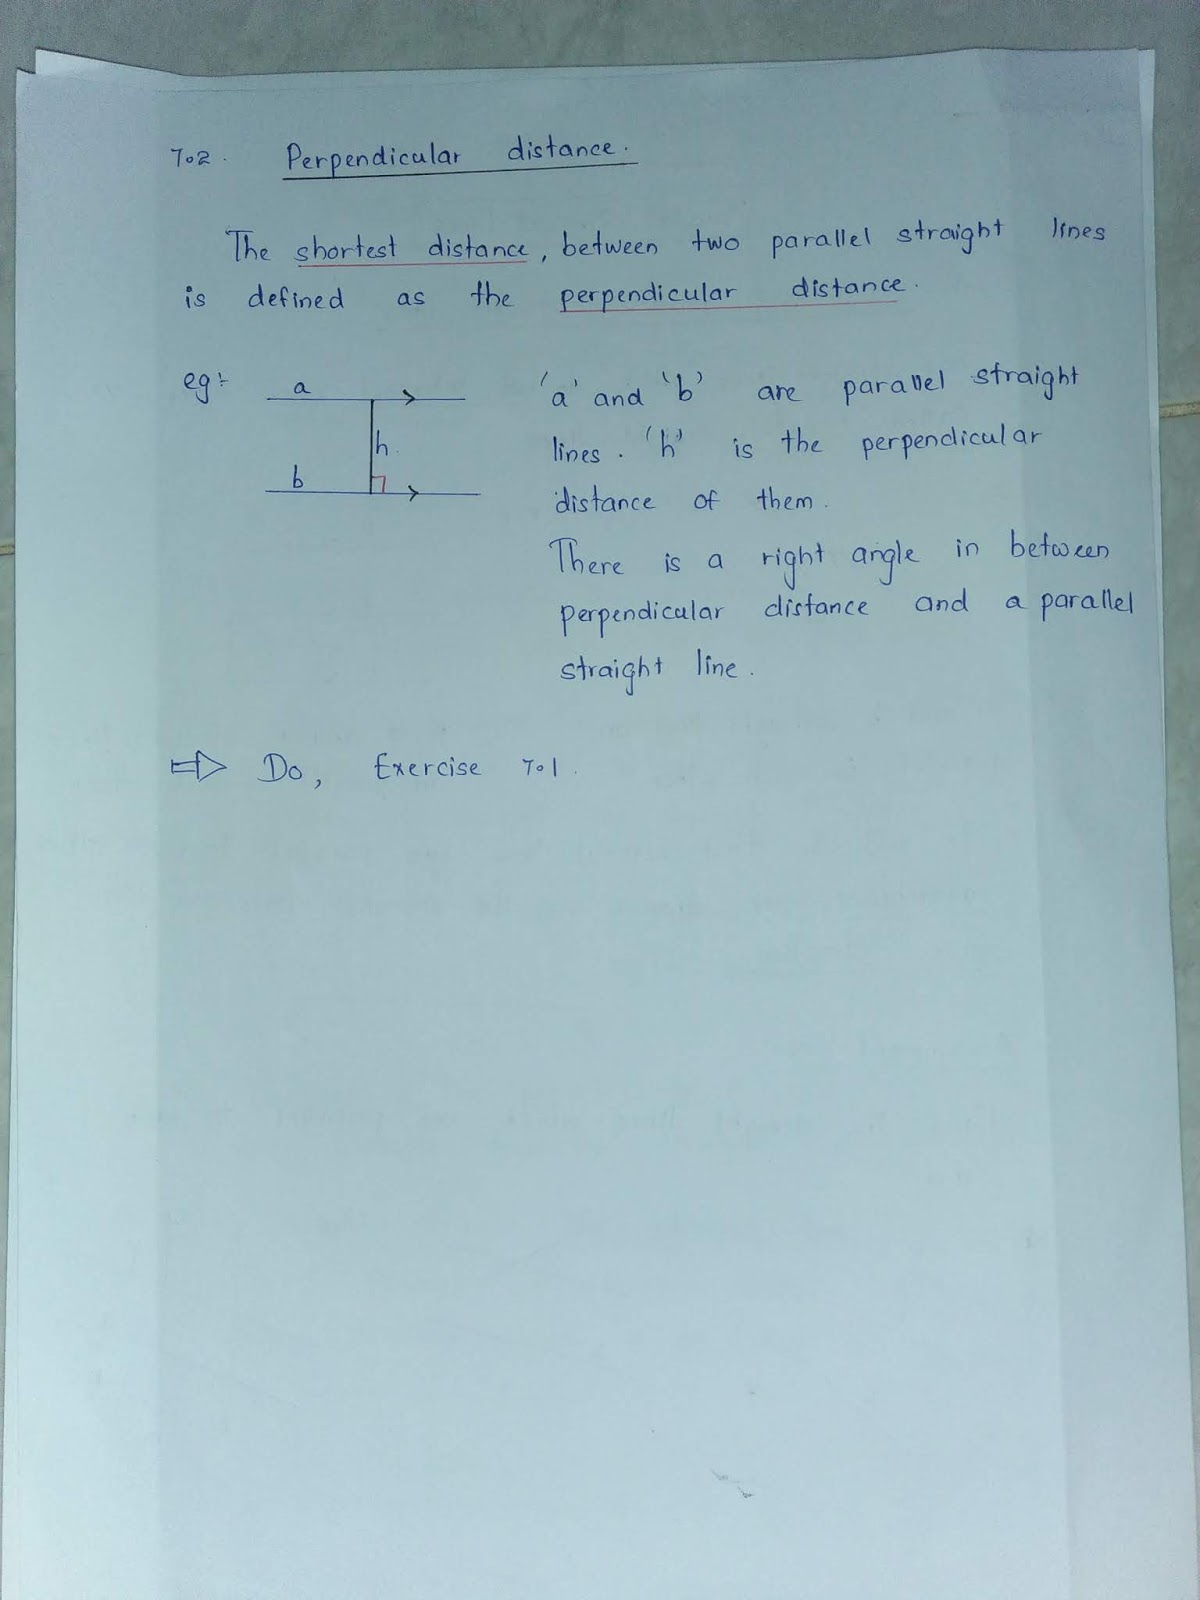 7.2. Perpendicular distance.
The shortest distance, between two parallel straight lines
is defined as the perpendicular distance.
eg:-
a
h
b
'a' and 'b' are parallel straight
lines. 'h' is the perpendicular
distance of them.
There is a right angle in between
perpendicular distance and a parallel
straight line.
⇒ Do, Exercise 7.1.